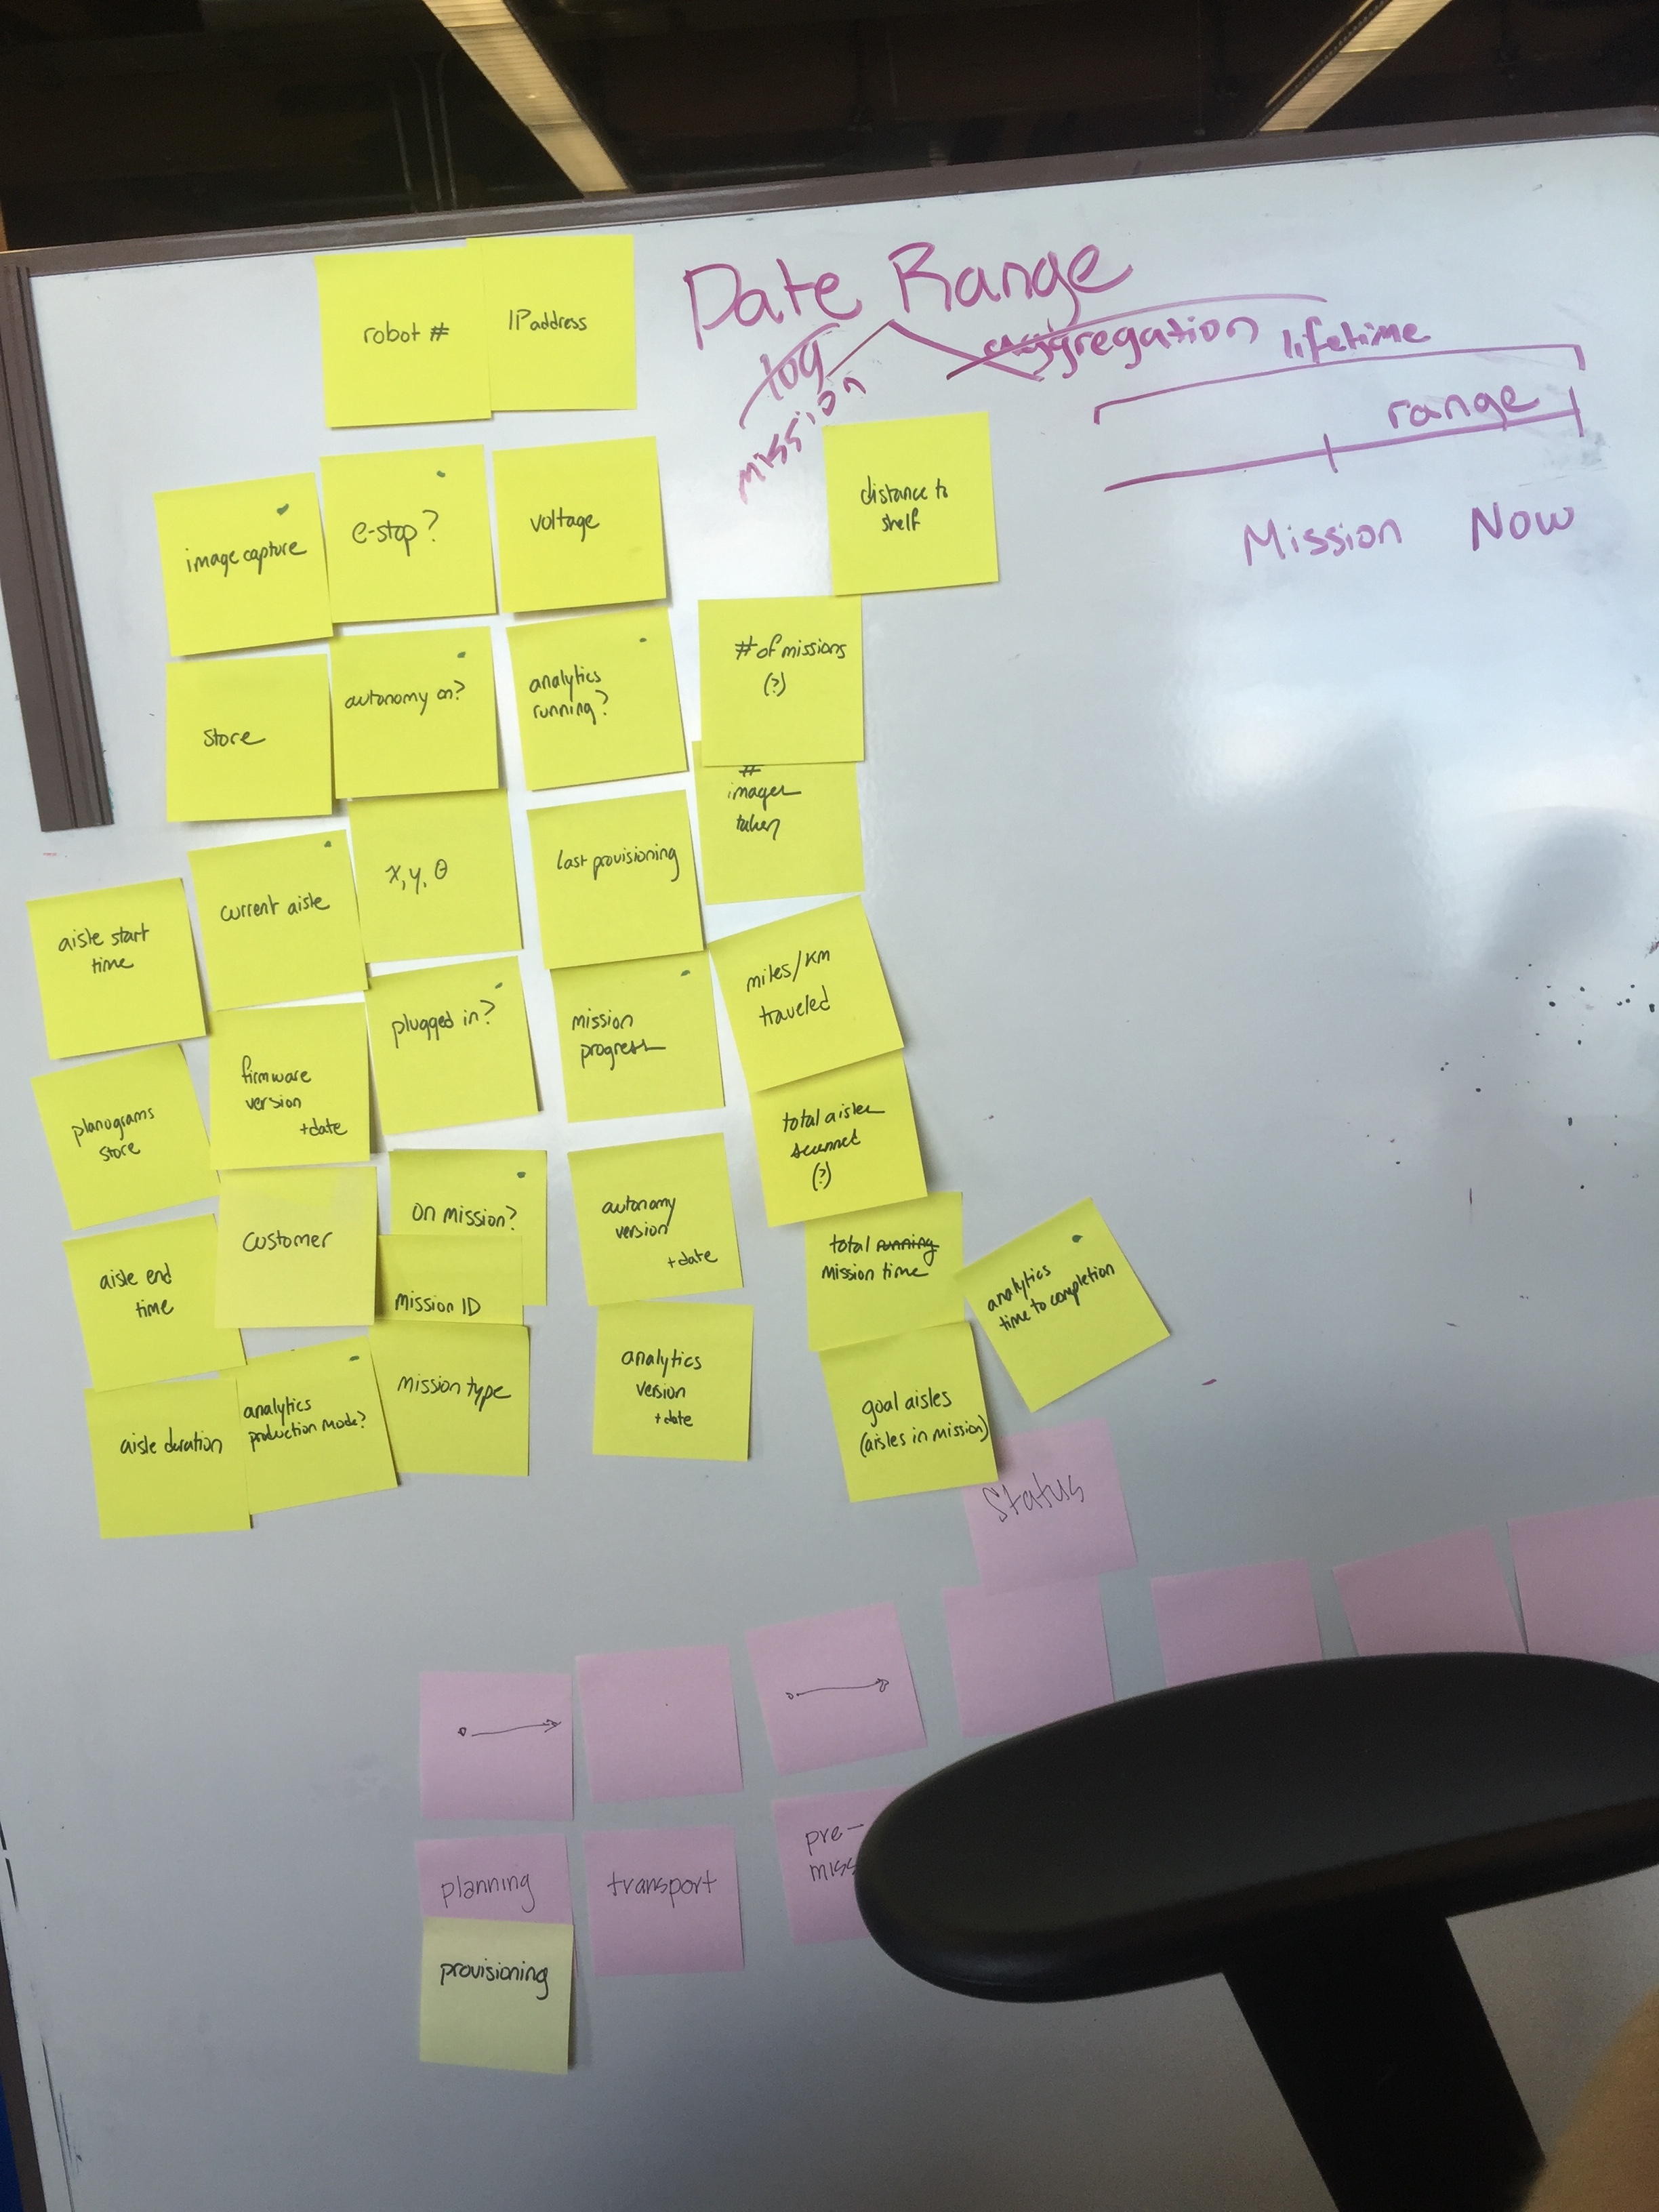 robot #
IP address
Date Range
log
mission
aggregation
lifetime
range
Mission
Now
image capture
e-stop?
voltage
distance to
shelf
store
autonomy on?
analytics
running?
# of missions
(?)
#
images
taken
aisle start
time
current aisle
x, y, θ
last provisioning
miles/km
traveled
planograms
store
firmware
version
+date
plugged in?
mission
progress
total aisles
scanned
(?)
aisle end
time
customer
on mission?
mission ID
autonomy
version
+date
total running
mission time
analytics
time to completion
aisle duration
analytics
production mode?
mission type
analytics
version
+date
goal aisles
(aisles in mission)
Status
planning
transport
pre-
miss
provisioning